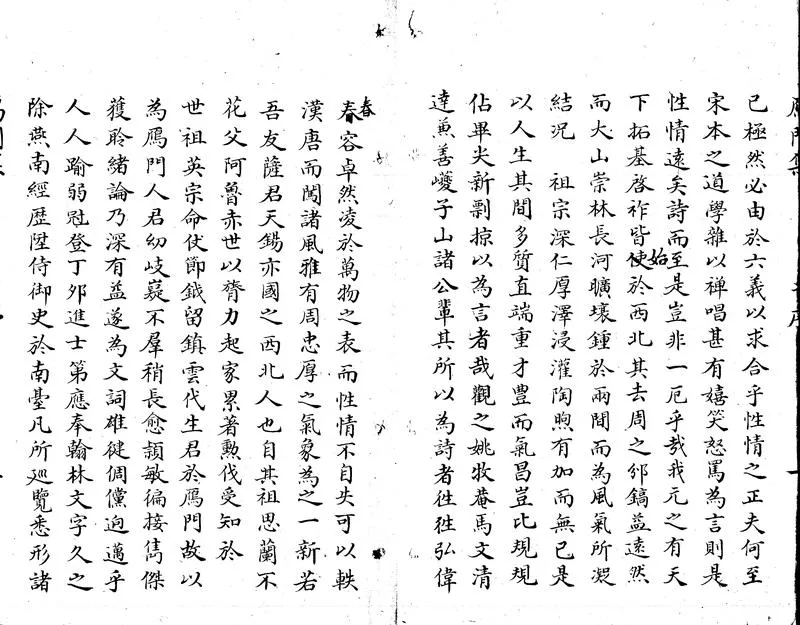 已極然必由於六義以求合乎性情之正夫何至
宋本之道學雜以禪唱甚有嬉笑怒罵為言則是
性情遠矣詩而至是豈非一厄乎哉我元之有天
下拓基啓祚皆使始於西北其去周之邠鎬益遠然
而大山崇林長河曠壤鍾於兩間而為風氣所凝
結況　祖宗深仁厚澤浸灌陶煦有加而無已是
以人生其間多質直端重才豊而氣昌豈比規規
佔畢尖新剽掠以為言者哉觀之姚牧菴馬文清
達兼善巙子山諸公輩其所以為詩者徃徃弘偉
舂容卓然凌於萬物之表而性情不自失可以軼
春
漢唐而闖諸風雅有周忠厚之氣象為之一新若
吾友薩君天錫亦國之西北人也自其祖思蘭不
花父阿魯赤世以膂力起家累著勲伐受知於
世祖英宗命仗節鉞留鎮雲代生君於鴈門故以
為鴈門人君幼岐嶷不羣稍長愈頴敏徧接雋傑
獲聆緒論乃深有益遂為文詞雄健倜儻迥邁乎
人人踰弱冠登丁夘進士第應奉翰林文字久之
除燕南經歷陞侍御史於南臺凡所巡覽悉形諸